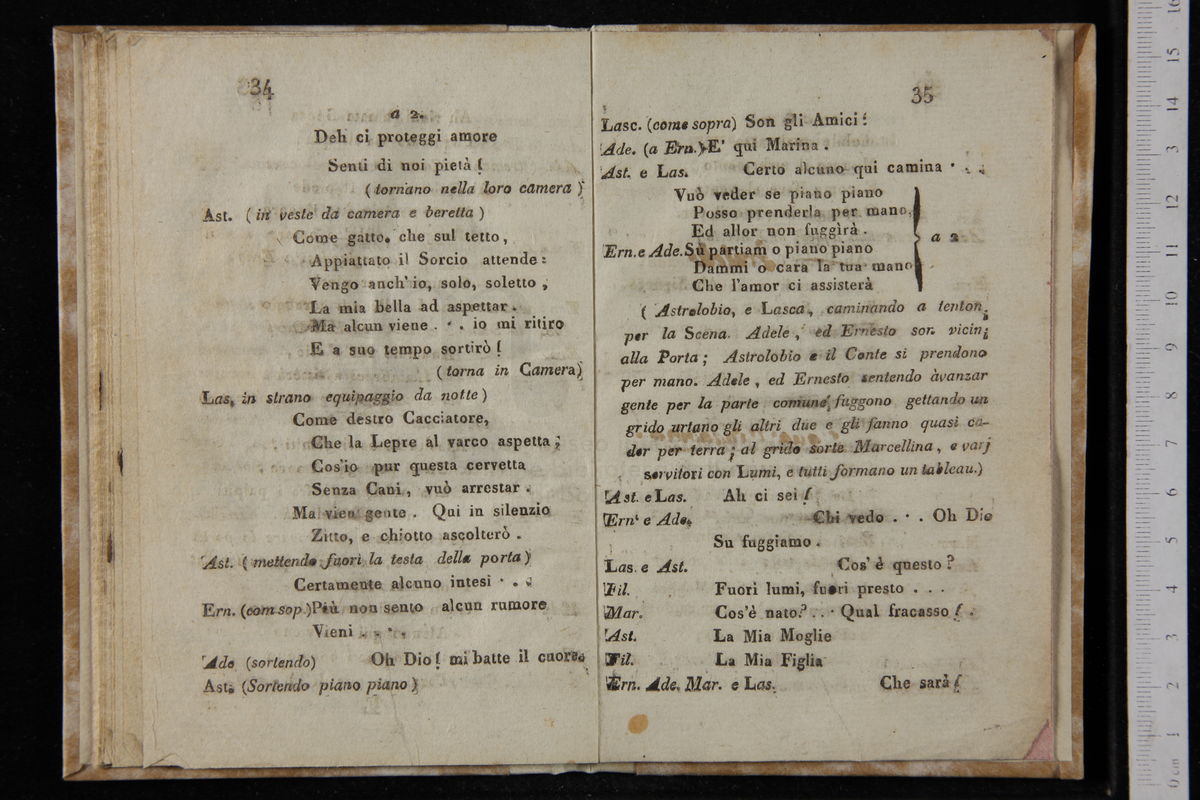 34
a 2.
Deh ci proteggi amore
Senti di noi pietà!
(tornano nella loro camera)
Ast. (in veste da camera e beretta)
Come gatto. che sul tetto,
Appiattato il Sorcio attende:
Vengo anch' io, solo, soletto,
La mia bella ad aspettar.
Ma alcun viene . . . io mi ritiro
E a suo tempo sortirò!
(torna in Camera)
Las. in strano equipaggio da notte)
Come destro Cacciatore,
Che la Lepre al varco aspetta;
Cos'io pur questa cervetta
Senza Cani, vuò arrestar.
Ma vien gente. Qui in silenzio
Zitto, e chiotto ascolterò.
Ast. (mettendo fuori la testa della porta)
Certamente alcuno intesi . . .
Ern. (com sop.) Più non sento alcun rumore
Vieni . . . .
Ade (sortendo) Oh Dio! mi batte il cuore.
Ast. (Sortendo piano piano)
35
Lasc. (come sopra) Son gli Amici!
Ade. (a Ern.) E' qui Marina.
Ast. e Las. Certo alcuno qui camina . . .
Vuò veder se piano piano
Posso prenderla per mano,
Ed allor non fuggìrà.
Ern. e Ade. Sù partiam o piano piano
Dammi o cara la tua mano
Che l'amor ci assisterà
a 2
( Astrolobio, e Lasca, caminando a tenton;
per la Scena. Adele, ed Ernesto son vicin;
alla Porta; Astrolobio e il Conte si prendono
per mano. Adele, ed Ernesto sentendo àvanzar
gente per la parte comune, fuggono gettando un
grido urtano gli altri due e gli fanno quasi ca-
der per terra; al grido sorte Marcellina, e varj
servitori con Lumi, e tutti formano un tableau.)
Ast. e Las. Ah ci sei!
Ern. e Ade. Chi vedo . . . Oh Dio
Su fuggiamo.
Las. e Ast. Cos' è questo?
Fil. Fuori lumi, fuori presto . . .
Mar. Cos'è nato? . . . Qual fracasso! .
Ast. La Mia Moglie
Fil. La Mia Figlia
Ern. Ade. Mar. e Las. Che sarà!